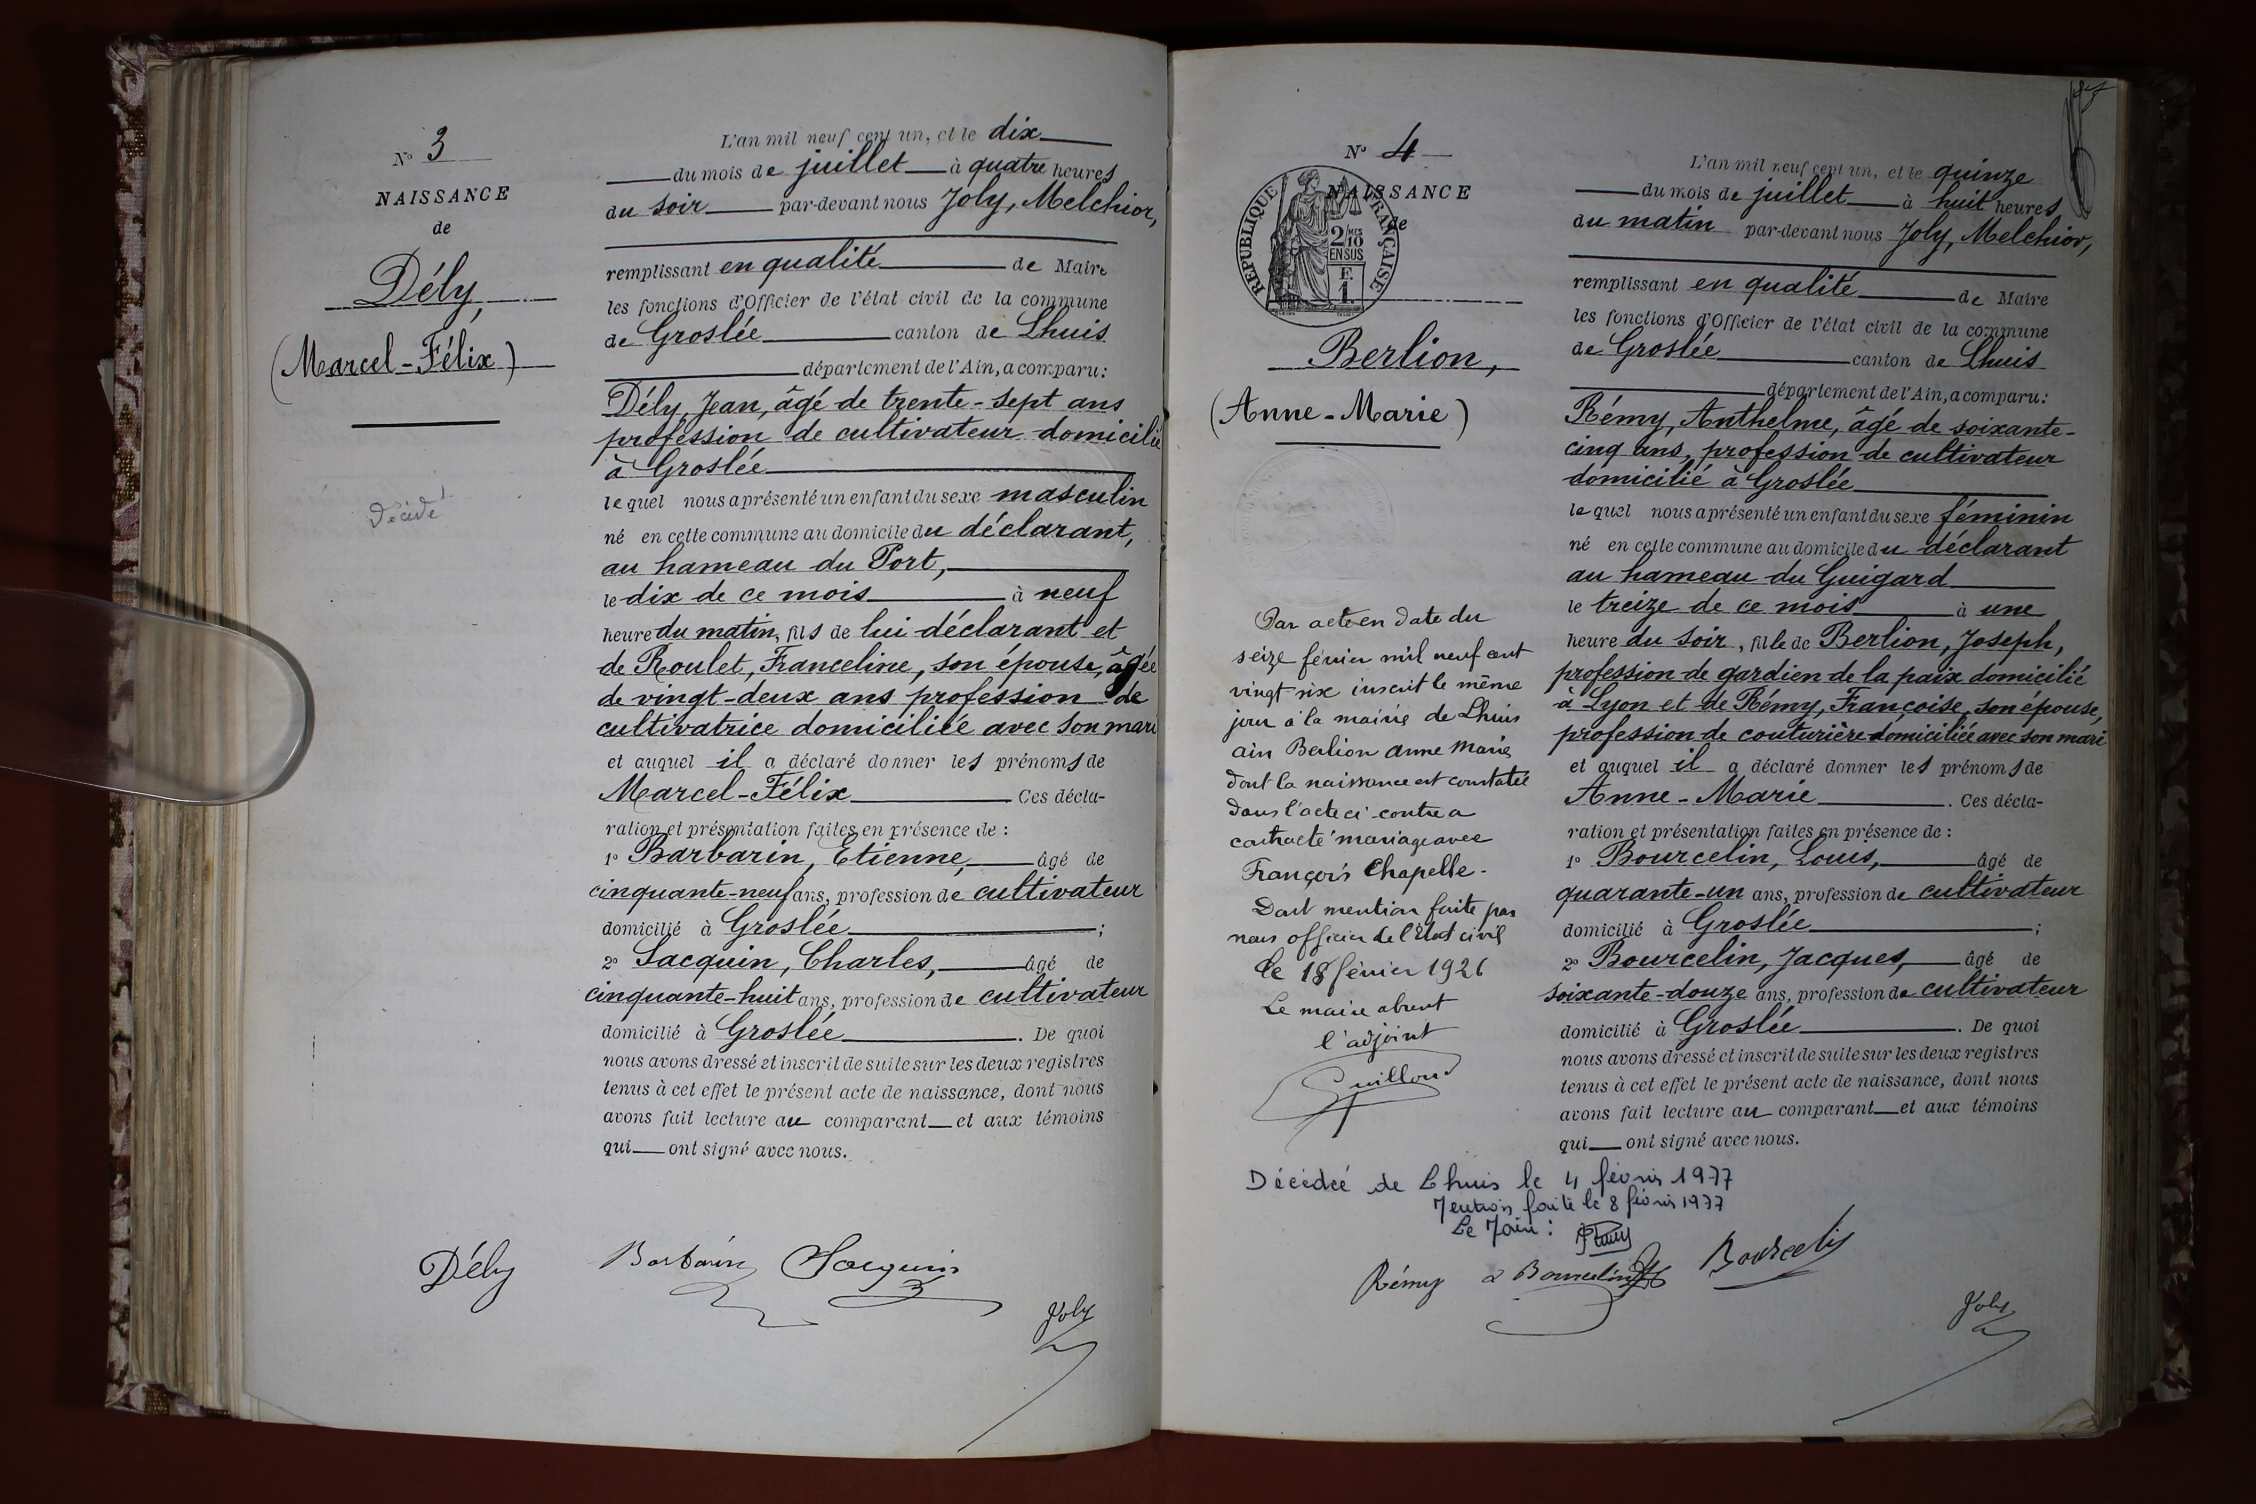 N° 3
NAISSANCE
de
Dély,
(Marcel-Félix)
décédé
L'an mil neuf cent un, et le dix
du mois de juillet à quatre heures
du soir par-devant nous Joly, Melchior,
remplissant en qualité de Maire
les fonctions d'Officier de l'état civil de la commune
de Groslée canton de Lhuis
département de l'Ain, a comparu:
Dély, Jean, âgé de trente-sept ans
profession de cultivateur domicilié
à Groslée
lequel nous a présenté un enfant du sexe masculin
né en cette commune au domicile du déclarant,
au hameau du Port,
le dix de ce mois à neuf
heure du matin, fils de lui déclarant et
de Roulet, Franceline, son épouse, âgée
de vingt-deux ans profession de
cultivatrice domiciliée avec son mari
et auquel il a déclaré donner les prénoms de
Marcel-Félix Ces décla-
ration et présentation faites en présence de :
1° Barbarin, Etienne, âgé de
cinquante-neuf ans, profession de cultivateur
domicilié à Groslée ;
2° Sacquin, Charles, âgé de
cinquante-huit ans, profession de cultivateur
domicilié à Groslée. De quoi
nous avons dressé et inscrit de suite sur les deux registres
tenus à cet effet le présent acte de naissance, dont nous
avons fait lecture au comparant et aux témoins
qui ont signé avec nous.
Dély Barbarin Sacquin
Joly
N° 4
NAISSANCE
de
RÉPUBLIQUE FRANÇAISE
2/10 MES
EN SUS
F.
1.
Berlion,
(Anne-Marie)
Par acte en date du
seize février mil neuf cent
vingt six inscrit le même
jour à la mairie de Lhuis
ain Berlion anne Marie
dont la naissance est constatée
dans l'acte ci-contre a
contracté mariage avec
François Chapelle.
Dont mention faite par
nous officier de l'Etat civil
le 18 février 1926
Le maire absent
l'adjoint
Guilloud
L'an mil neuf cent un, et le quinze
du mois de juillet à huit heures
du matin par-devant nous Joly, Melchior,
remplissant en qualité de Maire
les fonctions d'Officier de l'état civil de la commune
de Groslée canton de Lhuis
département de l'Ain, a comparu:
Rémy, Anthelme, âgé de soixante-
cinq ans, profession de cultivateur
domicilié à Groslée
lequel nous a présenté un enfant du sexe féminin
né en cette commune au domicile du déclarant
au hameau du Guigard
le treize de ce mois à une
heure du soir, fille de Berlion, Joseph,
profession de gardien de la paix domicilié
à Lyon et de Rémy, Françoise, son épouse,
profession de couturière domiciliée avec son mari
et auquel il a déclaré donner les prénoms de
Anne-Marie. Ces décla-
ration et présentation faites en présence de :
1° Bourcelin, Louis, âgé de
quarante-un ans, profession de cultivateur
domicilié à Groslée ;
2° Bourcelin, Jacques, âgé de
soixante-douze ans, profession de cultivateur
domicilié à Groslée. De quoi
nous avons dressé et inscrit de suite sur les deux registres
tenus à cet effet le présent acte de naissance, dont nous
avons fait lecture au comparant et aux témoins
qui ont signé avec nous.
Décédée de Lhuis le 4 février 1977
Mention faite le 8 février 1977
Le Maire :
Rémy Bourcelin Bourcelin
Joly